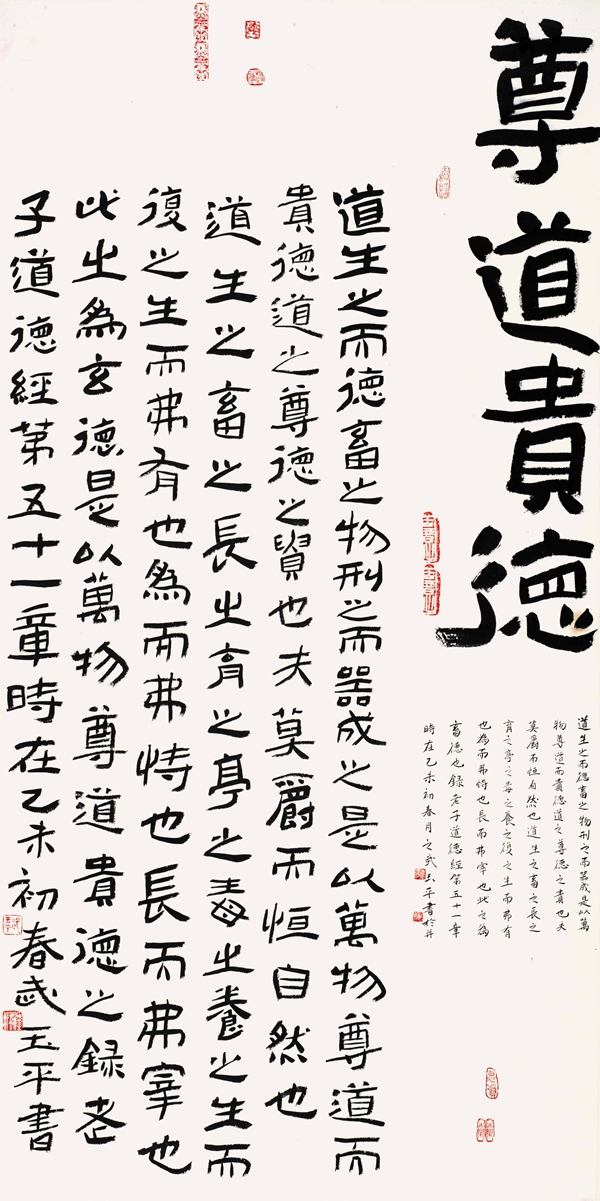 尊道貴德
道生之而德畜之物刑之而器成是以萬
物尊道而貴德道之尊德之貴也夫
莫爵而恒自然也道生之畜之長之
育之亭之毒之養之復之生而弗有
也為而弗恃也長而弗宰也此之為
畜德也錄老子道德經第五十一章
時在乙未初春月之武玉平書於并
道生之而德畜之物刑之而器成之是以萬物尊道而
貴德道之尊德之貴也夫莫爵而恒自然也
道生之畜之長之育之亭之毒之養之生而
復之生而弗有也為而弗恃也長而弗宰也
此之為玄德是以萬物尊道貴德之錄老
子道德經第五十一章時在乙未初春武玉平書